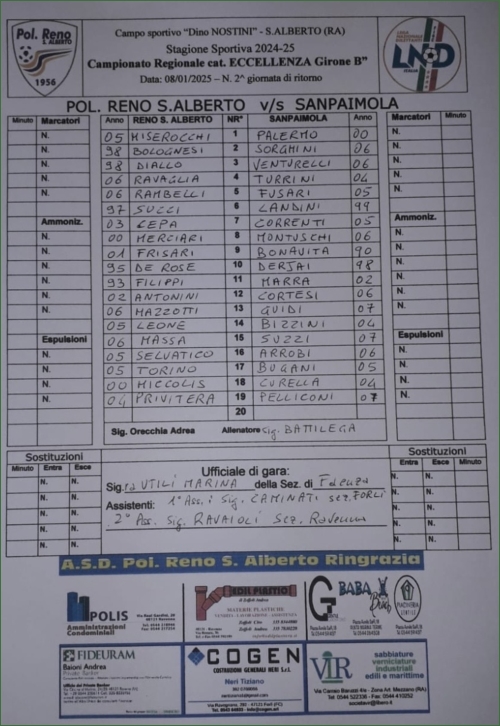 Pol. Reno
S. ALBERTO
1956
Campo sportivo “Dino NOSTINI” - S.ALBERTO (RA)
Stagione Sportiva 2024-25
Campionato Regionale cat. ECCELLENZA Girone B”
Data: 08/01/2025 – N. 2^ giornata di ritorno
LND
ITALIA
POL. RENO S.ALBERTO v/s SANPAIMOLA
Minuto Marcatori Anno RENO S. ALBERTO NR° SANPAIMOLA Anno Marcatori Minuto
05 MISEROCCHI 1 PALERMO 00
98 BOLOGNESI 2 SORGHINI 06
98 DIALLO 3 VENTURELLI 06
06 RAVAGLIA 4 TURRINI 04
06 RAMBELLI 5 FUSARI 05
97 SUCCI 6 LANDINI 99
Ammoniz. 03 CEPA 7 CORRENTI 05 Ammoniz.
00 MERCIARI 8 MONTUSCHI 06
01 FRISARI 9 BONAVITA 90
95 DE ROSE 10 DERJAI 98
93 FILIPPI 11 MARRA 02
02 ANTONINI 12 CORTESI 06
06 MAZZOTTI 13 GUIDI 07
05 LEONE 14 BIZZINI 04
Espulsioni 06 MASSA 15 SUZZI 07 Espulsioni
05 SELVATICO 16 ARROBI 06
05 TORINO 17 BUGANI 05
00 MICCOLIS 18 CURELLA 04
04 PRIVITERA 19 PELLICONI 07
20
Sig. Orecchia Adrea Allenatore Sig. BATTILEGA
Sostituzioni
Minuto Entra Esce
Ufficiale di gara:
Sig.ra UTILI MARINA della Sez. di Faenza
Assistenti: 1° Ass. Sig. CAMINATI sez. FORLÌ
2° Ass. Sig. RAVAIOLI Sez. Ravenna
Sostituzioni
Entra Esce Minuto
A.S.D. Pol. Reno S. Alberto Ringrazia
POLIS
Amministrazioni
Condominiali
EDIL PLASTIC
MATERIE PLASTICHE
BABA
Beach
FIDEURAM
Baioni Andrea
Private Banker
COGEN
COSTRUZIONI GENERALI NERI S.r.l.
Neri Tiziano
VIR
sabbiature
verniciature
industriali
edili e marittime